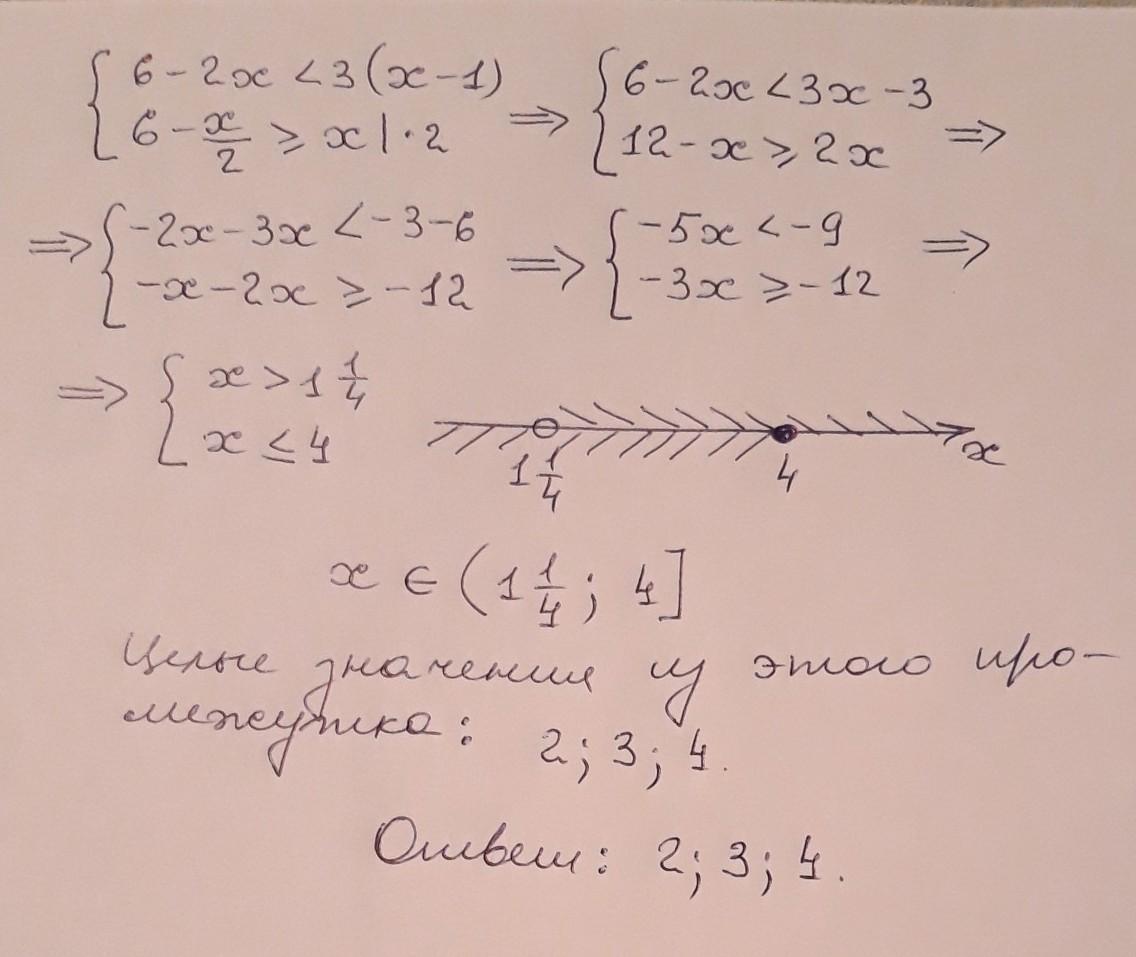 { 6 - 2x < 3(x - 1) ⇒ { 6 - 2x < 3x - 3
{ 6 - x/2 ≥ x | · 2 ⇒ { 12 - x ≥ 2x ⇒
⇒ { -2x - 3x < -3 - 6 ⇒ { -5x < -9 ⇒
{ -x - 2x ≥ -12 { -3x ≥ -12
⇒ { x > 1 1/4
{ x ≤ 4
1 1/4 4 x
x ∈ (1 1/4; 4]
Целые значения из этого про-
межутка: 2; 3; 4.
Ответ: 2; 3; 4.